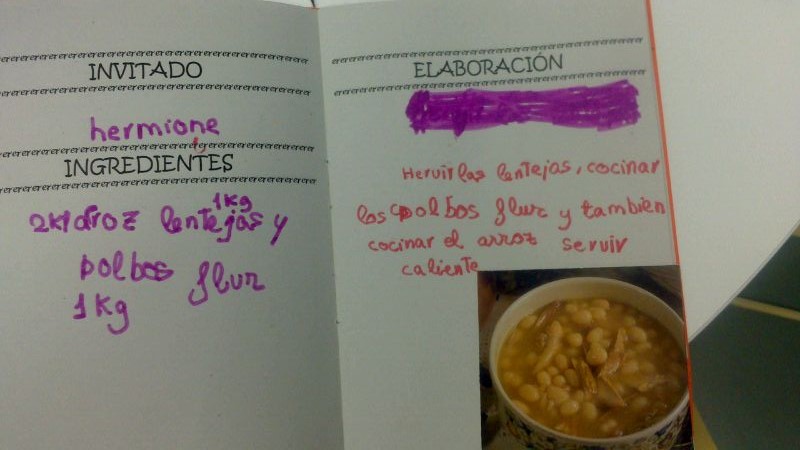 INVITADO
hermione
INGREDIENTES
1kg
2kg arroz lentejas y
polbos flur
1kg
ELABORACIÓN
Hervir las lentejas, cocinar
los polbos flur y tambien
cocinar el arroz servir
caliente